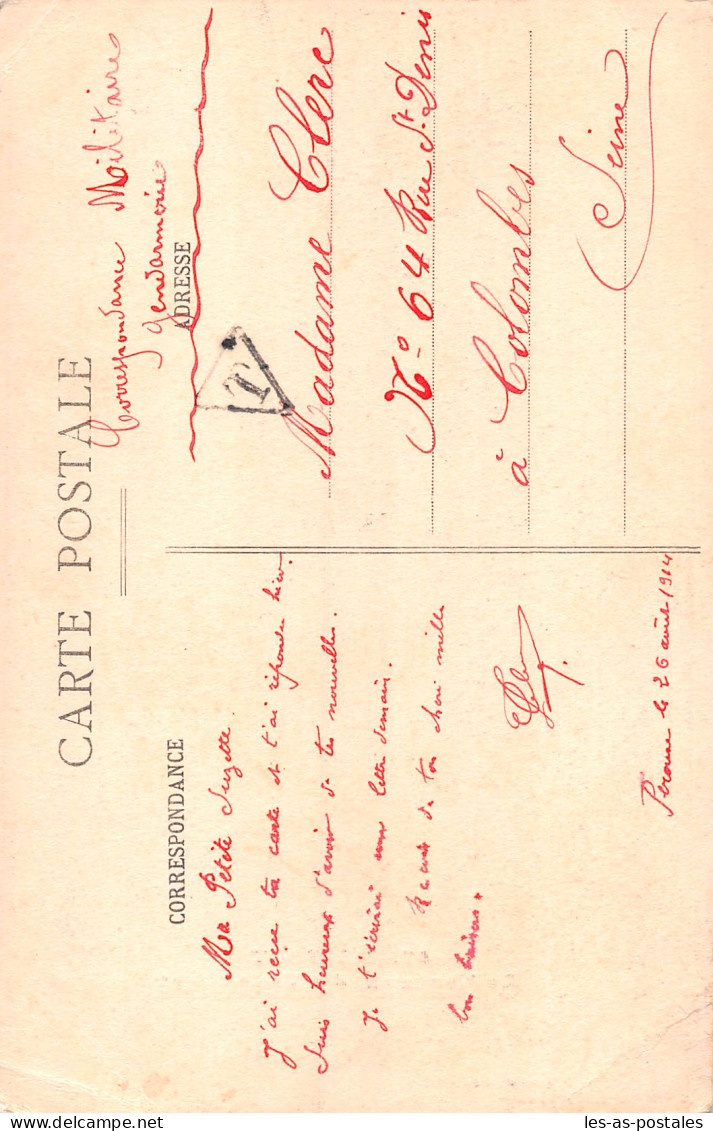 CARTE POSTALE
CORRESPONDANCE
Ma Petite Suzette.
J'ai reçue ta carte et t'ai réponse hier.
Suis heureux d'avoir de tes nouvelles.
Je t'écrirai une lettre demain.
Recois de ton chéri mille
bon baisers.
Peronne le 26 août 1914
Correspondance Militaire
Gendarmerie
ADRESSE
T
Madame Clerc
No 64 Rue St Denis
à Colombes
Seine
les-as-postales